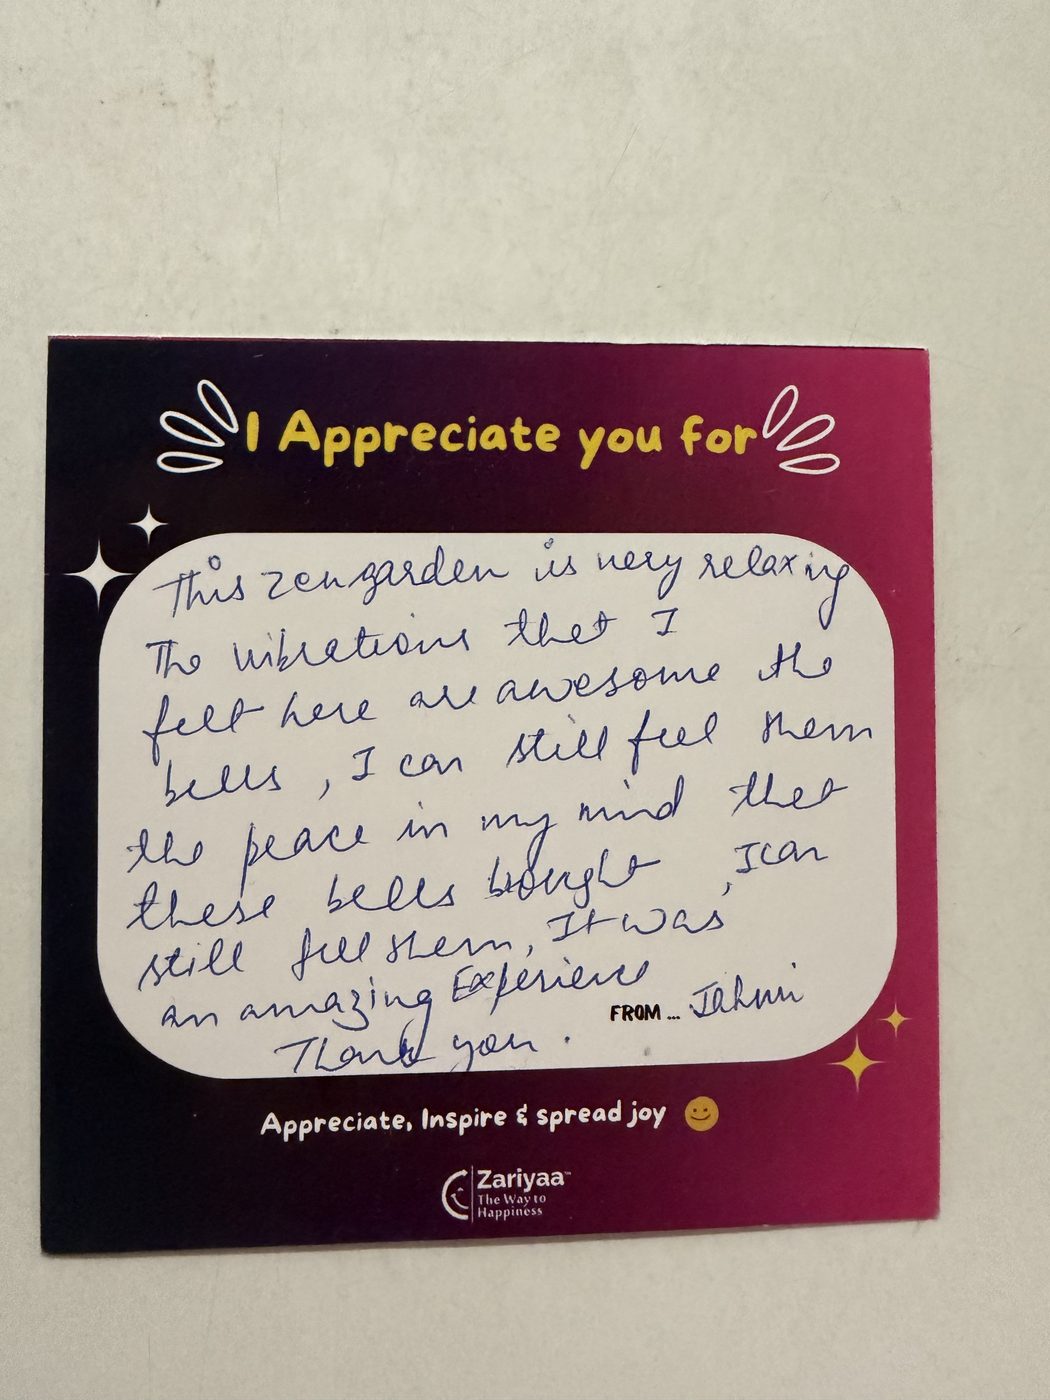 I Appreciate you for
This zengarden is very relaxing
The vibrations that I
felt here are awesome the
bells, I can still feel them
the peace in my mind that
these bells bought, I can
still fell them, It was
an amazing Experience
FROM...
Thank you.
Appreciate, Inspire & spread joy
Zariyaa™
The Way to
Happiness